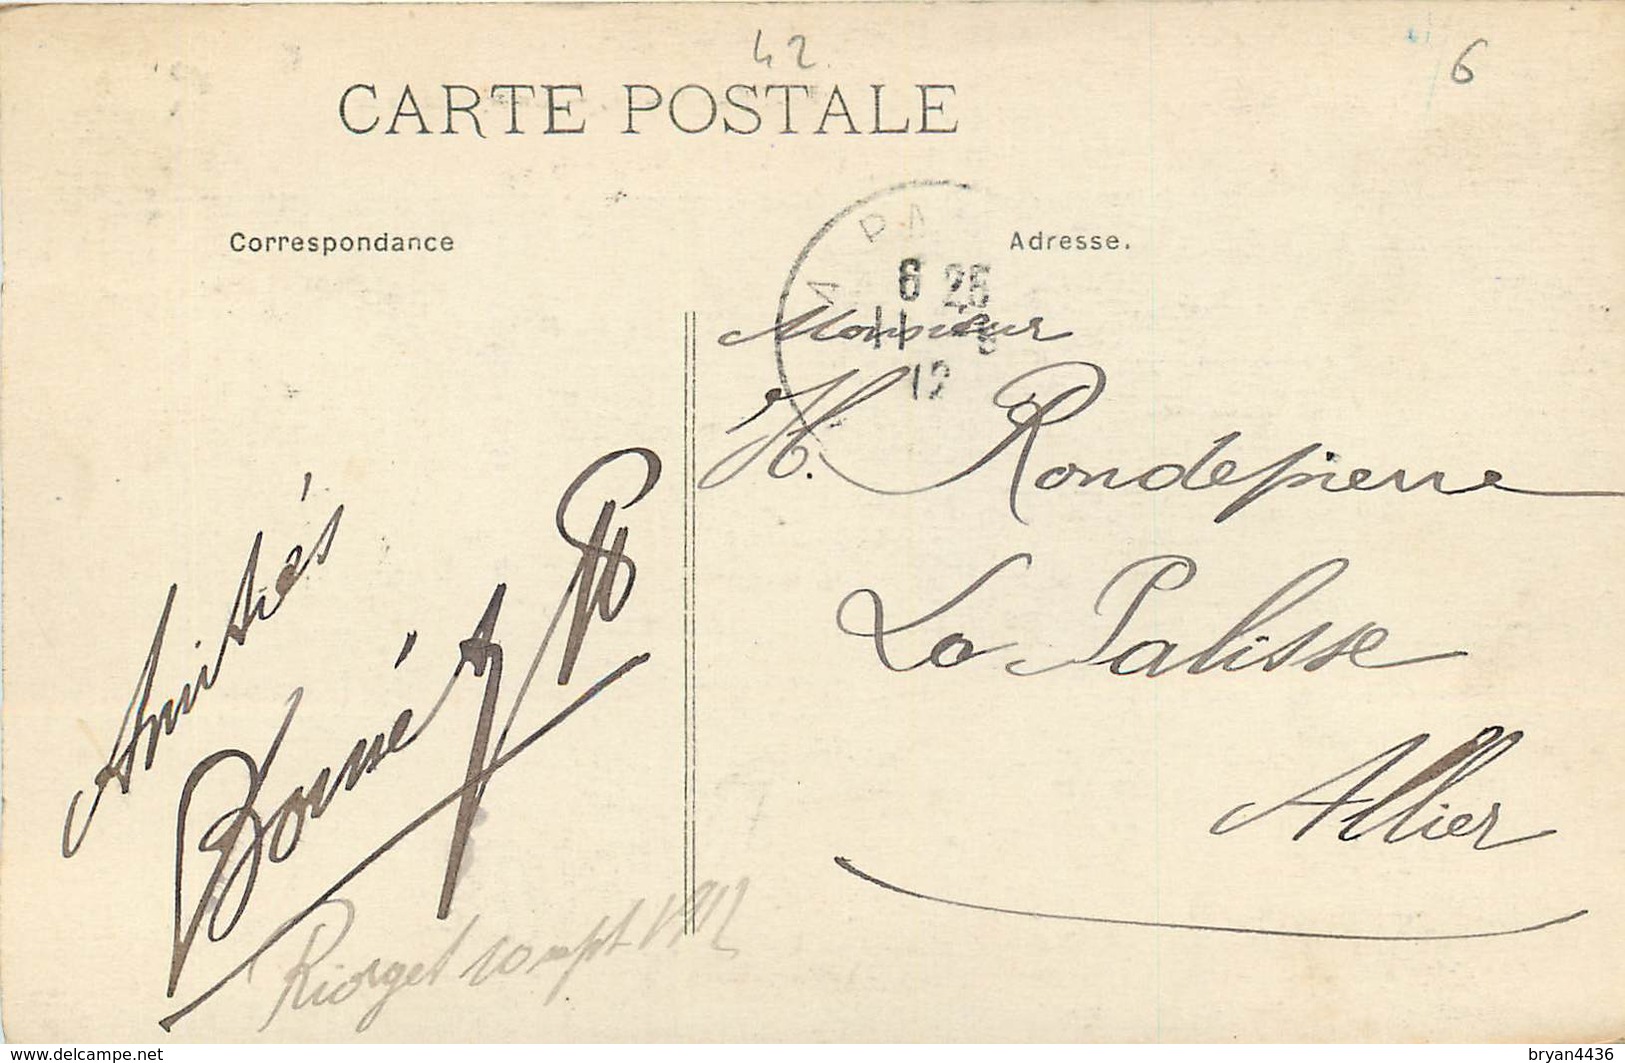 42
6
CARTE POSTALE
Correspondance
Adresse.
PA
6 25
11 9
12
Monsieur
H. Rondepierre
La Palisse
Allier
Amitiés
Riorges 10 sept 1912
www.delcampe.net
bryan4436